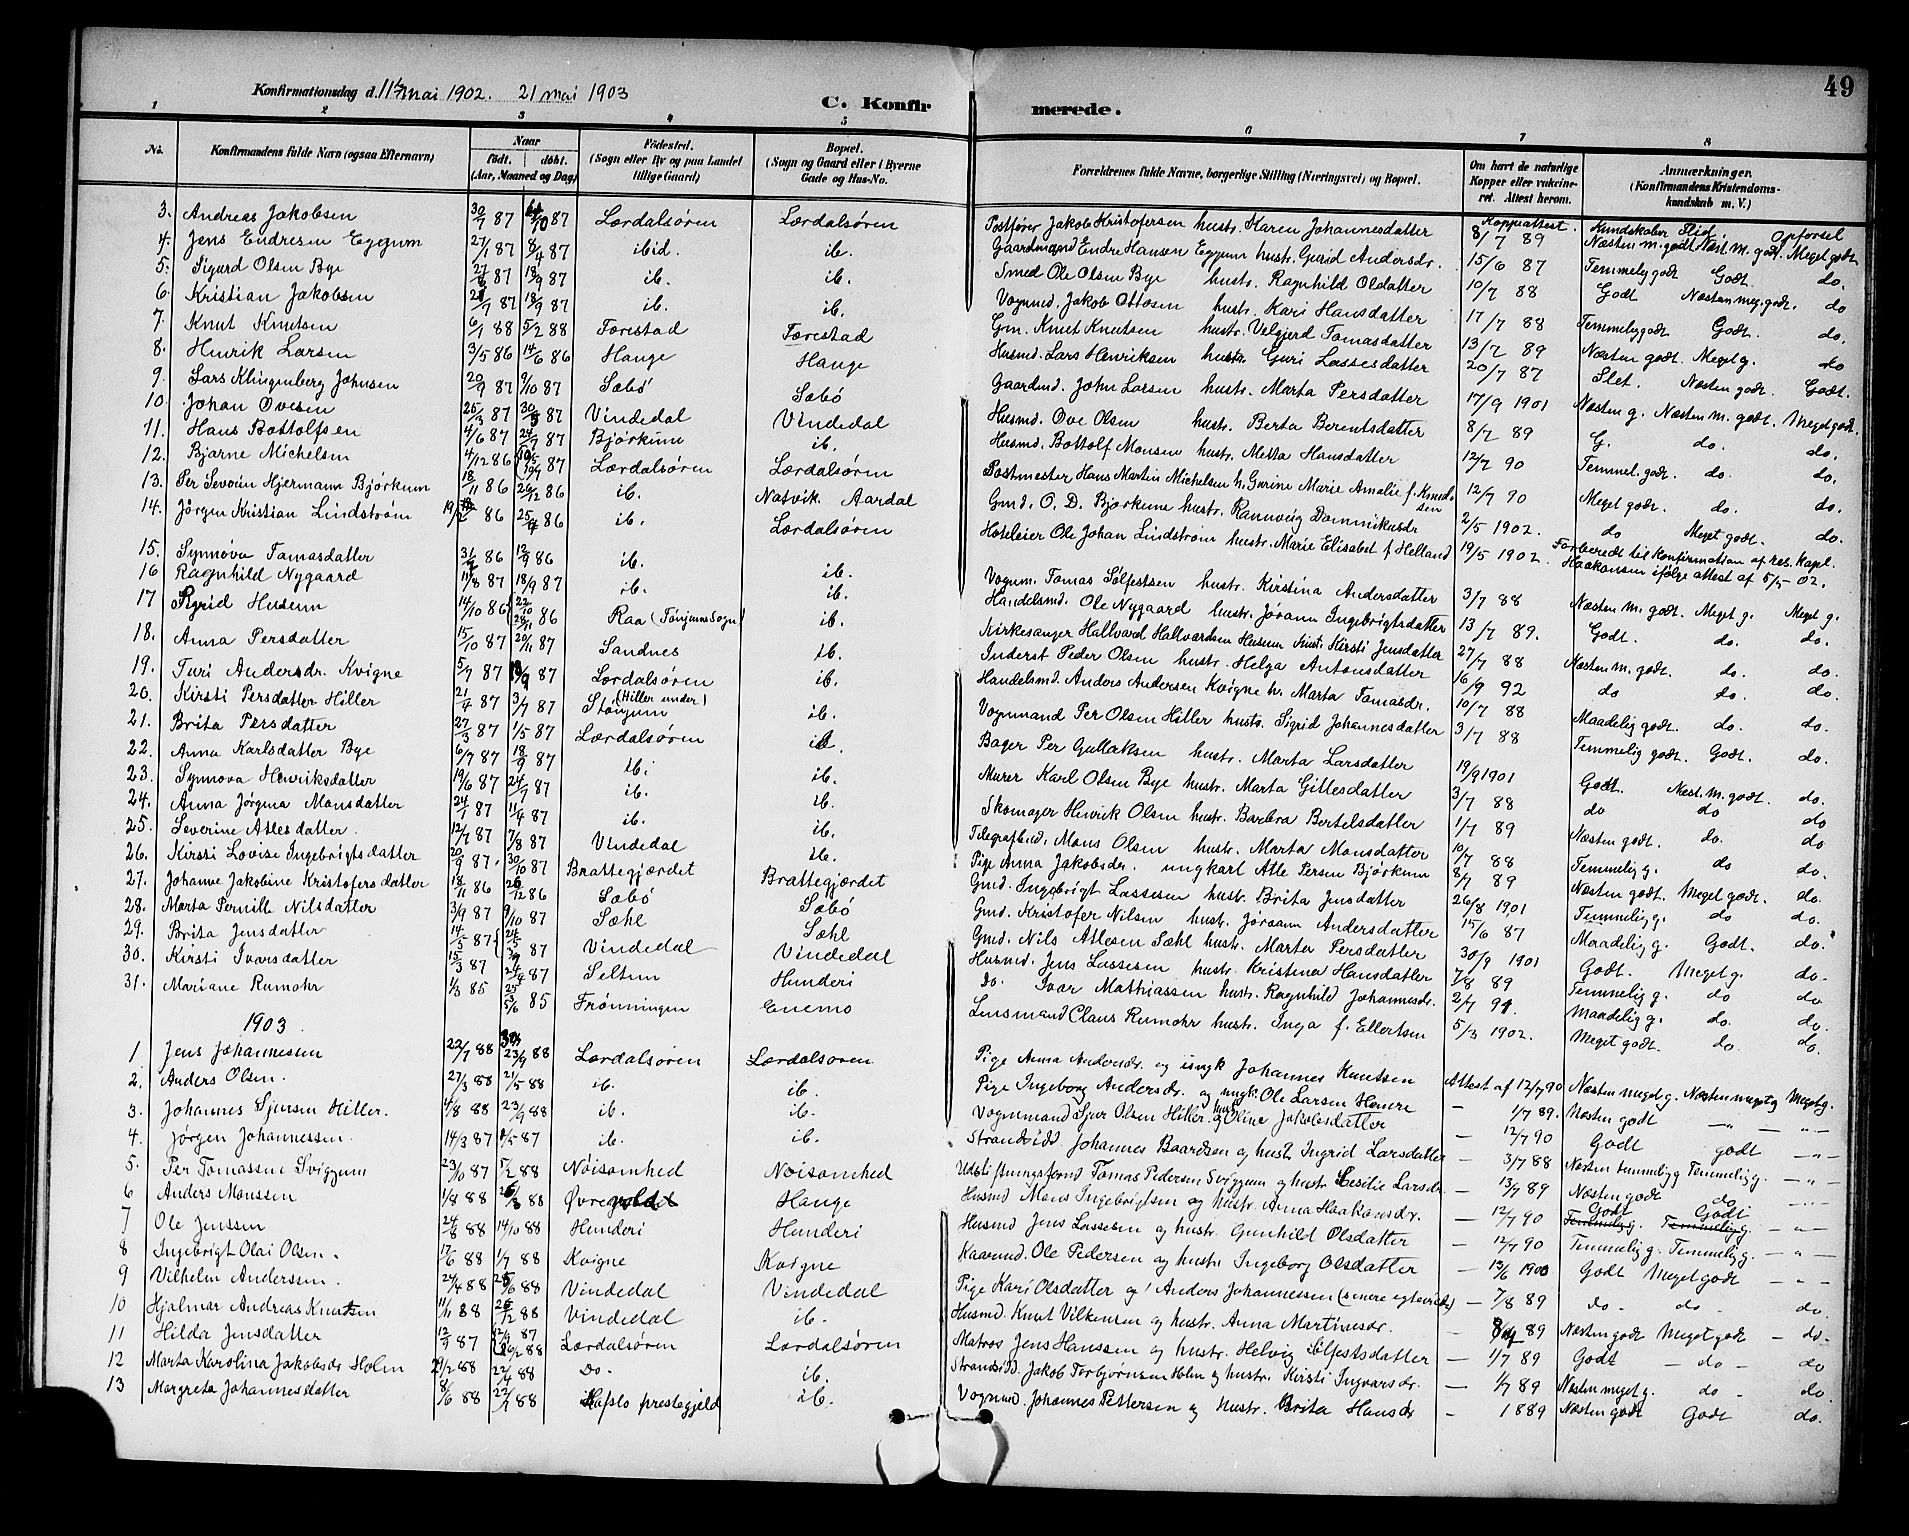 49
Konfirmationsdag d. 11te mai 1902. 21 mai 1903
C. Konfirmerede.
1 2 3 4 5 6 7 8
No. Konfirmandens fulde Navn (ogsaa Efternavn) Naar født. døbt. (Aar, Maaned og Dag) Fødested. (Sogn eller By og paa Landet tillige Gaard) Bopæl. (Sogn og Gaard eller i Byerne Gade og Hus-No. Forældrenes fulde Navne, borgerlige Stilling (Næringsvei) og Bopæl. Om havt de naturlige Kopper eller vakcineret. Attest herom. Anmærkninger. (Konfirmandens Kristendomskundskab m. V.)
Koppeattest. Kundskaber Flid. Opførsel
3. Andreas Jakobsen 30/7 87 87 Lærdalsøren Lærdalsøren Postfører Jakob Kristofersen hustr. Karen Johannesdatter 8/7 89 Næsten m. godt Næst. m. godt. Meget godt
4. Jens Endresen Eggum 27/1 87 8/4 87 ibid. ib. Gaardmand Endre Hansen Eggum hustr. Gurid Andersdr. 15/6 87 Temmelig godt Godt. do.
5. Sigurd Olsen Bye 87 18/9 87 ib. ib. Smed Ole Olsen Bye hustr. Ragnhild Olsdatter 10/7 88 Godt Næsten meg. godt. do
6. Kristian Jakobsen 87 18/9 87 ib. ib. Vognmd. Jakob Ottosen hustr. Kari Hansdatter 17/7 88 Temmelig godt Godt. do.
7. Knut Knutsen 6/1 88 5/2 88 Færestad Færestad Gm. Knut Knutsen hustr. Velgjerd Tomasdatter 13/7 89 Næsten godt. Meget g. do
8. Henrik Larsen 3/5 86 14/6 86 Hauge Hauge Husmd. Lars Henriksen hustr. Guri Lassesdatter 20/7 87 Slet. Næsten godt. Godt.
9. Lars Klingenberg Johnsen 20/9 87 9/10 87 Sæbø Sæbø Gaardmd. John Larsen hustr. Marta Persdatter 17/9 1901 Næsten g. Næsten m. godt. Meget godt.
10. Johan Ovesen 25/3 87 87 Vindedal Vindedal Husmd. Ove Olsen hustr. Berta Berentsdatter 8/7 89 G. do. do.
11. Hans Bottolfsen 4/6 87 24/7 87 Bjørkum ib. Husmd. Bottolf Monsen hustr. Metta Hansdatter 12/7 90 Temmel. godt. do. do.
12. Bjarne Michelsen 4/12 86 87 Lærdalsøren Lærdalsøren Postmester Hans Martin Michelsen h. Gurine Marie Amalie f. Knudsen 12/7 90 Meget godt. do. do.
13. Per Severin Hjermann Bjørkum 18/11 86 26/12 86 ib. Natvik Aardal Gmd. O. D. Bjørkum hustr. Rannveig Dominikusdr 2/5 1902. do Meget godt. do.
14. Jørgen Kristian Lindstrøm 19/2 86 25/4 86 ib. Lærdalsøren Hoteleier Ole Johan Lindstrøm hustr. Marie Elisabet f Helland 19/5 1902. Forberedt til Konfirmation af res. Kapel. Haakonsen ifølge attest af 5/5 02.
15. Synnøva Tomasdatter 86 12/9 86 ib. ib. Vognm. Tomas Sølfestsen hustr. Kirstina Andersdatter 3/7 88 Næsten m. godt. Meget g. Meget g.
16 Ragnhild Nygaard 11/8 87 18/9 87 ib. ib. Handelsmd. Ole Nygaard hustr. Jørann Ingebrigtsdatter 13/7 89. Godt. do. do.
17 Sigrid Husum 14/10 86 86 Raa (Tønjums Sogn) ib. Kirkesanger Hallvard Hallvardsen Husum hust. Kirsti Jensdatter 27/7 88 Næsten m. godt. do. do.
18. Anna Persdatter 15/10 87 20/11 87 Sandnes ib. Inderst Peder Olsen hustr. Helga Antonsdatter 16/9 92 do do. do.
19. Turi Andersdr. Kvigne 5/7 87 87 Lærdalsøren ib. Handelsmd. Anders Andersen Kvigne h. Marta Tomasdr. 10/7 88 Maadelig godt. do. do.
20. Kirsti Persdatter Hiller 21/4 87 3/7 87 Stønjum (Hiller under) ib. Vognmand Per Olsen Hiller hustr. Sigrid Johannesdatter 3/7 88 Temmelig godt. Godt. do.
21. Brita Persdatter 27/3 87 1/5 87 Lærdalsøren ib. Bager Per Gullaksen hustr. Marta Larsdatter 19/9 1901 Godt. Næst. m. godt. do.
22. Anna Karlsdatter Bye 6/7 87 18/9 87 ib. ib. Murer Karl Olsen Bye hustr. Marta Gittesdatter 3/7 88 do do do
23. Synnova Henriksdatter 19/6 87 24/7 87 ib. ib. Skomager Henrik Olsen hustr. Barbra Bertelsdatter 1/7 89 Næsten godt. do. do
24. Anna Jørgina Monsdatter 24/1 87 11/4 87 ib. ib. Telegrafbud. Mons Olsen hustr. Marta Monsdatter 10/7 88 Temmelig g. do do.
25. Severine Atlesdatter. 12/7 87 7/8 87 Vindedal ib. Pige Anna Jakobsdr. ungkarl Atle Persen Bjørkum 8/7 89 Næsten godt. Meget godt. do.
26. Kirsti Lovise Ingebrigtsdatter 20/9 87. 30/10 87 Brattegjærdet Brattegjærdet Gmd. Ingebrigt Lassesen hustr. Brita Jensdatter 26/8 1901 Temmelig g. do do.
27. Johanne Jakobine Kristofersdatter 18/11 86 26/12 86 Sæbø Sæbø Gmd. Kristofer Nilsen hustr. Jørann Andersdatter 15/6 87 Maadelig g. Godt. do.
28. Marta Pernille Nilsdatter 3/9 87 9/10 87 Sæhl Sæhl Gmd. Nils Atlesen Sæhl hustr. Marta Persdatter 30/9 1901 Godt. Meget g. do.
29. Brita Jensdatter 14/5 87 87 Vindedal Vindedal Husmd. Jens Lassesen hustr. Kristina Hansdatter 7/8 89 Temmelig g. do do
30. Kirsti Ivarsdatter 15/3 87 24/4 87 Seltun Hunderi Do. Ivar Mathiassen hustr. Ragnhild Johannesdr. 2/7 91 Maadelig g. do. do.
31. Mariane Rumohr 1/3 85 85 Frønningen Enemo Lensmand Claus Rumohr hustr. Inga f. Ellertsen 5/3 1902. Meget godt. do. do.
1903
1 Jens Johannessen 22/7 88 23/9 88 Lærdalsøren Lærdalsøren Pige Anna Andersdr. og ungk Johannes Knutsen Attest af 12/7 90 Næsten meget g. Næsten meget g Meget g.
2. Anders Olsen. 27/3 88 21/5 88 ib. ib. Pige Ingeborg Andersdr. og ungk. Ole Larsen Henere — 1/7 89. Næsten godt —„— „—
3. Johannes Sjursen Hiller. 4/8 88 23/9 88 ib. ib. Vognmand Sjur Olsen Hiller og hustr. Oline Jakobsdatter — 12/7 90 Godt godt —„—
4. Jørgen Johannessen. 14/3 87 87 ib. ib. Strandsidd Johannes Baardsen og hust Ingrid Larsdatter — 3/7 88 Næsten temmelig g Temmelig g. —„—
5. Per Tomassen Sviggum 23/10 87 5/2 88 Nøisomhed Nøisomhed Udskiftningsformd Tomas Pedersen Sviggum og hustr Cecilie Larsdr. — 13/7 89 Næsten godt do —„—
6 Anders Monssen 1/8 88 88 Øvregvold Hauge Husmd Mons Ingebrigtsen og hustr. Anna Haakonsdr. — 12/7 90 Godt Godt Temmelig g. Temmelig g. —„—
7 Ole Jenssen 24/8 88 14/10 88 Hunderi Hunderi Husmd Jens Lassesen og hustr. Gunhild Olsdatter — 12/7 90 Temmelig g. Temmelig g. —„—
8 Ingebrigt Olai Olsen. 17/6 88 1/7 88 Kvigne Kvigne Kaarmd. Ole Pedersen og hustr. Ingeborg Olsdatter — 12/6 1900 Godt Meget godt —„—
9 Vilhelm Anderssen. 24/4 88 88 Vindedal Vindedal Pige Kari Olsdatter og Anders Johannessen (senere egtevide) — 7/8 89 do - do - do
10 Hjalmar Andreas Knutsen 11/11 88 26/12 88 Vindedal ib. Husmd. Knut Vilkensen og hustr. Anna Martinusdr. — 89 Næsten godt Meget godt — do-
11 Hilda Jensdatter 12/9 87 12/9 87 26/2 88 Lærdalsøren Lærdalsøren Matros Jens Hanssen og hustr. Helvig Sølfestsdatter — 1/7 89 Godt — do - do
12 Marta Karolina Jakobsdr Holm 21/2 88 22/4 88 Do. ib. Strandsidd. Jakob Torbjørnsen Holm og hustr. Kirsti Ingvarsdr. — 1/7 89 Næsten meget g. do - do
13 Margreta Johannesdatter 8/6 88 88 Hafslo prestegjeld ib. Vognmd. Johannes Pettersen og hustr. Brita Hansdr - 1889 Næsten godt Godt do.